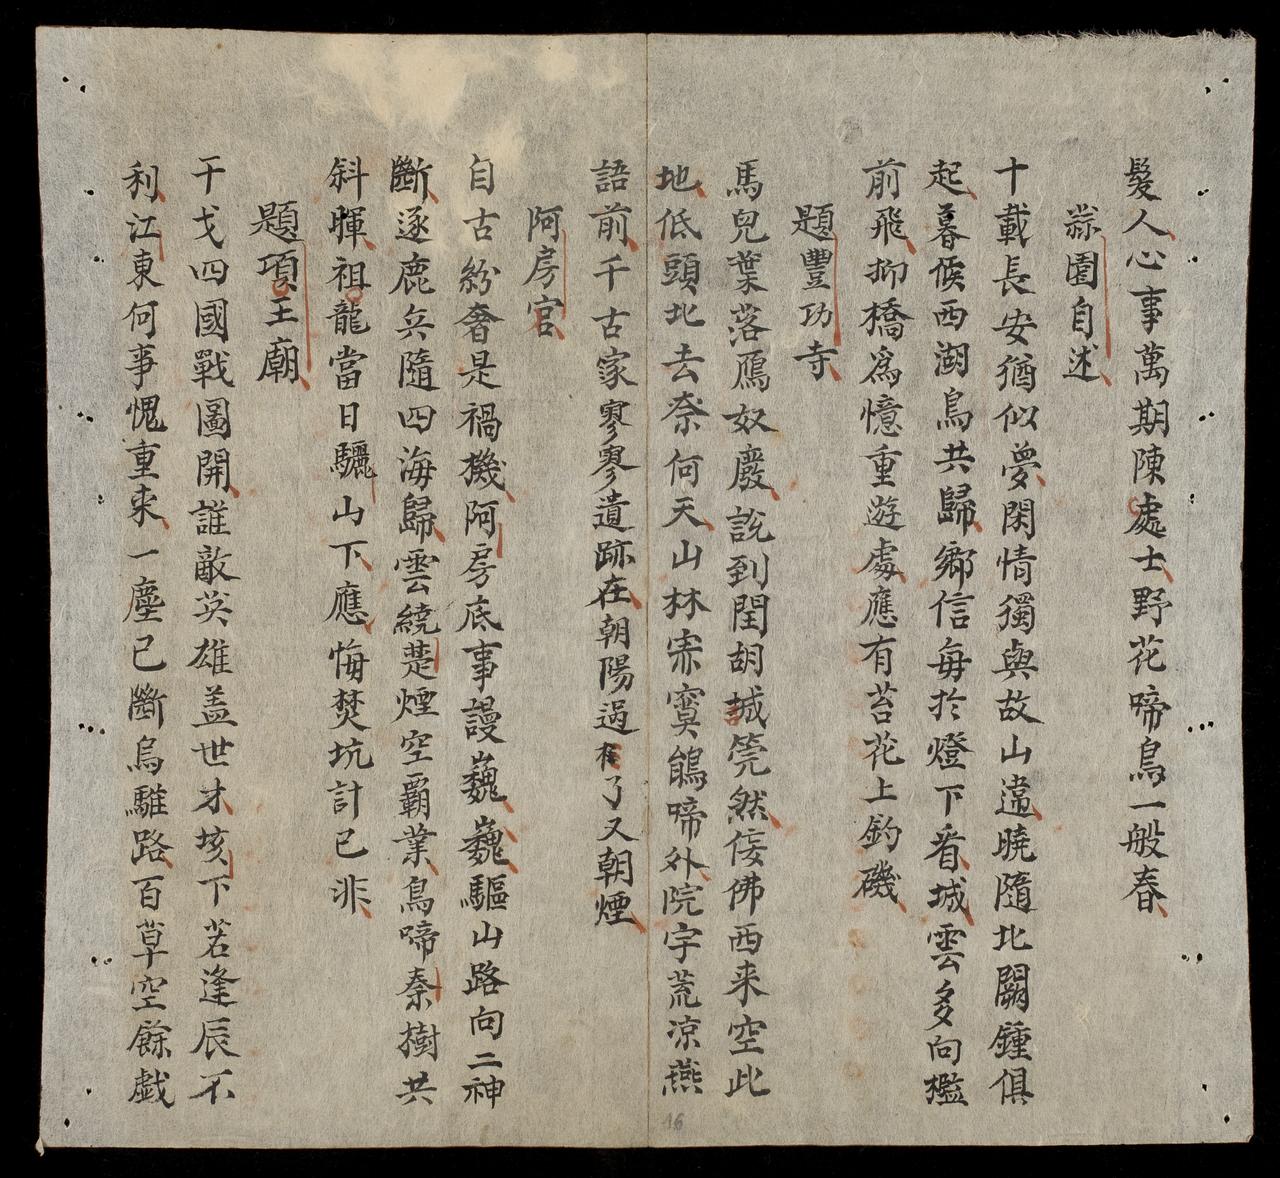 髮人心事萬期陳處士野花啼鳥一般春
蒜園自述
十載長安猶似夢閑情獨與故山違曉隨北闕鍾俱
起暮候西湖鳥共歸鄉信每於燈下看城雲多向檻
前飛抑橋爲憶重遊處應有苔花上釣磯
題豐功寺
馬兒葉落鴈奴廢說到閏胡城筦然侫佛西来空此
地低頭北去奈何天山林寂寞鵑啼外院宇荒凉燕
語前千古家寥寥遺跡在朝陽過了又朝煙
阿房宮
自古紛奢是禍機阿房底事謾巍巍驅山路向二神
斷逐鹿兵隨四海歸雲繞楚煙空霸業鳥啼秦樹共
斜暉祖龍當日驪山下應悔焚坑計已非
題項王廟
干戈四國戰圖開誰敵英雄盖世才垓下若逢辰不
利江東何事愧重来一塵已斷烏騅路百草空餘戯
16